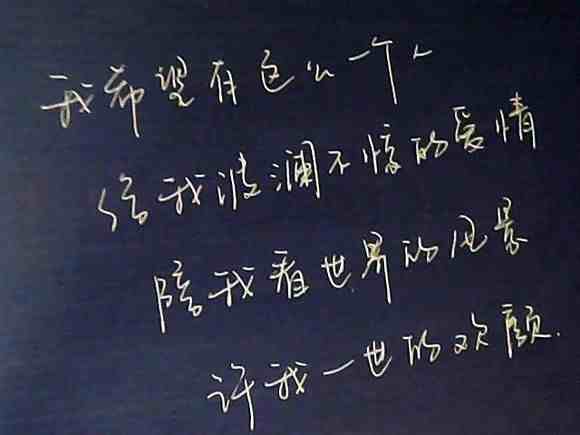 我希望有这么一个人
给我波澜不惊的爱情
陪我看世界的风景
许我一世的欢颜.